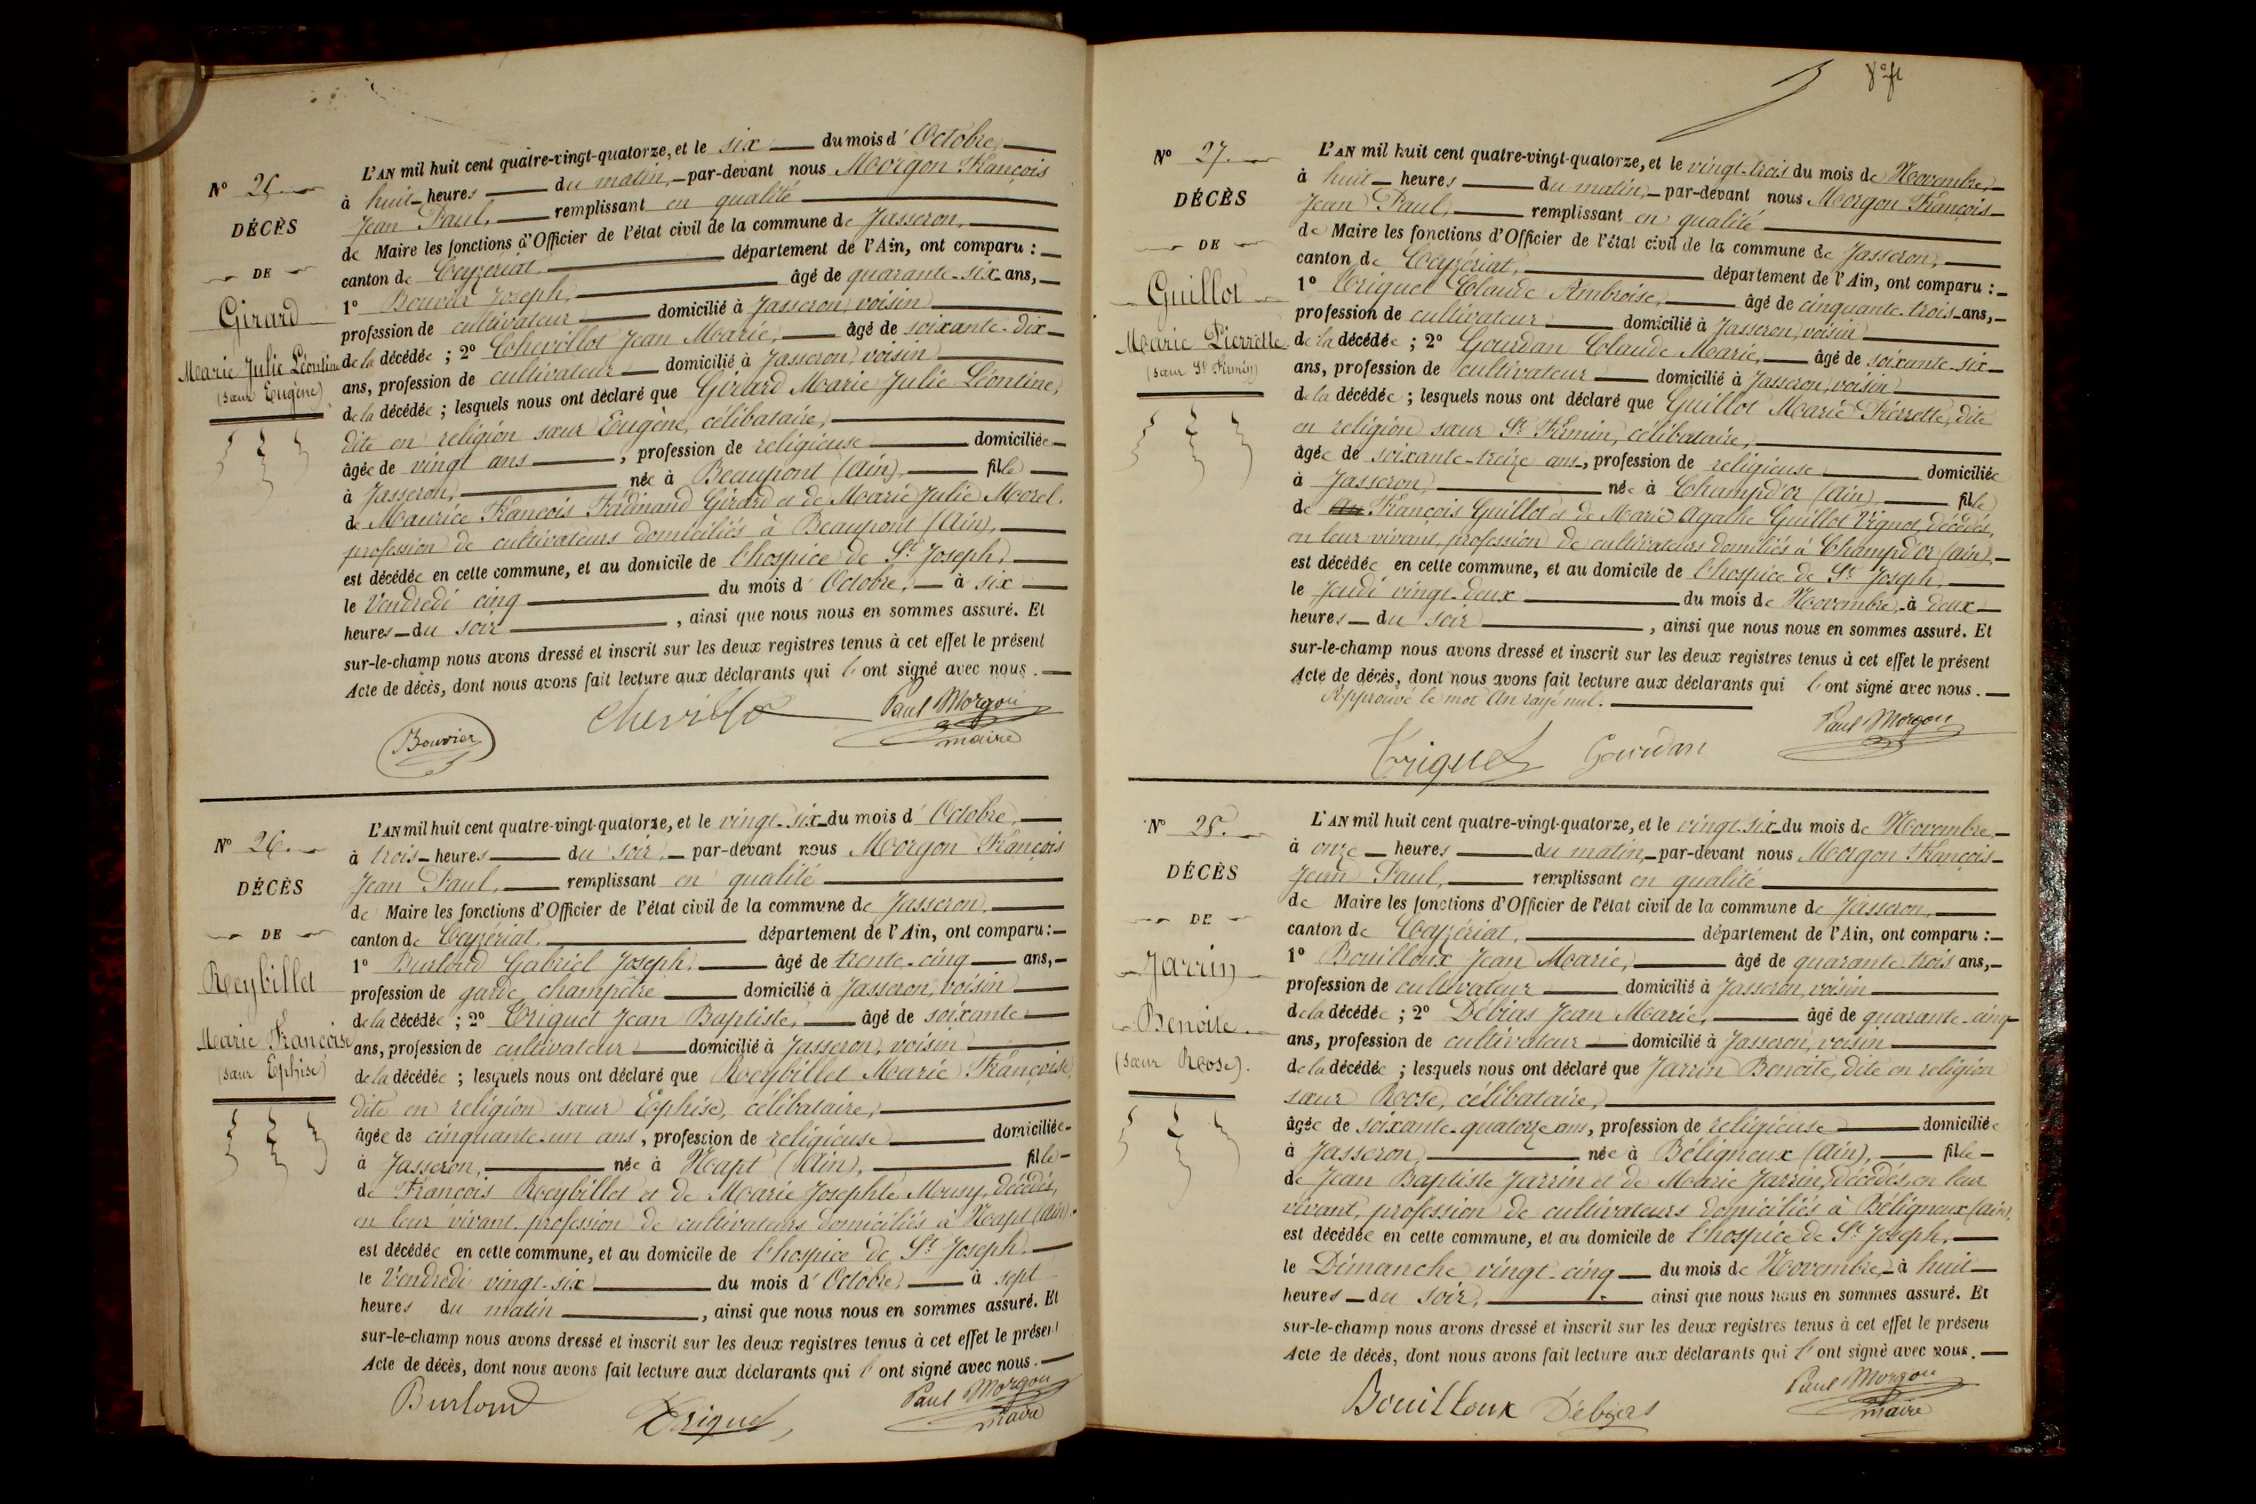 N° 25.
DÉCÈS
DE
Girard
Marie Julie Léontine
(sœur Eugène)
L'AN mil huit cent quatre-vingt-quatorze, et le six du mois d'Octobre,
à huit heures du matin, par-devant nous Morgon François
Jean Paul, remplissant en qualité
de Maire les fonctions d'Officier de l'état civil de la commune de Jasseron,
canton de Ceyzériat, département de l'Ain, ont comparu :
1° Bouvier Joseph, âgé de quarante-six ans,
profession de cultivateur domicilié à Jasseron, voisin
de la décédée ; 2° Chevillot Jean Marie, âgé de soixante-dix
ans, profession de cultivateur domicilié à Jasseron, voisin
de la décédée ; lesquels nous ont déclaré que Girard Marie Julie Léontine,
dite en religion sœur Eugène, célibataire,
âgée de vingt ans, profession de religieuse domiciliée
à Jasseron, née à Beaupont (Ain), fille
de Maurice François Ferdinand Girard et de Marie Julie Morel.
profession de cultivateurs domiciliés à Beaupont (Ain),
est décédée en cette commune, et au domicile de l'hospice de St Joseph,
le Vendredi cinq du mois d'Octobre, à six
heures du soir, ainsi que nous nous en sommes assuré. Et
sur-le-champ nous avons dressé et inscrit sur les deux registres tenus à cet effet le présent
Acte de décès, dont nous avons fait lecture aux déclarants qui l'ont signé avec nous.
Bouvier Chevillot Paul Morgon
maire
N° 26.
DÉCÈS
DE
Reybillet
Marie Françoise
(sœur Ephise)
L'AN mil huit cent quatre-vingt-quatorze, et le vingt-six du mois d'Octobre,
à trois heures du soir, par-devant nous Morgon François
Jean Paul, remplissant en qualité
de Maire les fonctions d'Officier de l'état civil de la commune de Jasseron,
canton de Ceyzériat, département de l'Ain, ont comparu :
1° Burloud Gabriel Joseph, âgé de trente-cinq ans,
profession de garde champêtre domicilié à Jasseron, voisin
de la décédée ; 2° Triquet Jean Baptiste, âgé de soixante
ans, profession de cultivateur domicilié à Jasseron, voisin
de la décédée ; lesquels nous ont déclaré que Reybillet Marie Françoise,
dite en religion sœur Ephise, célibataire,
âgée de cinquante-un ans, profession de religieuse domiciliée
à Jasseron, née à Napt (Ain), fille
de François Reybillet et de Marie Josephte Mouy, décédés,
en leur vivant, profession de cultivateurs domiciliés à Napt (Ain).
est décédée en cette commune, et au domicile de l'hospice de St Joseph,
le Vendredi vingt-six du mois d'Octobre, à sept
heures du matin, ainsi que nous nous en sommes assuré. Et
sur-le-champ nous avons dressé et inscrit sur les deux registres tenus à cet effet le présent
Acte de décès, dont nous avons fait lecture aux déclarants qui l'ont signé avec nous.
Burloud Triquet Paul Morgon
maire
N° 27.
DÉCÈS
DE
Guillot
Marie Pierrette
(sœur St Firmin)
L'AN mil huit cent quatre-vingt-quatorze, et le vingt-trois du mois de Novembre,
à huit heures du matin, par-devant nous Morgon François
Jean Paul, remplissant en qualité
de Maire les fonctions d'Officier de l'état civil de la commune de Jasseron,
canton de Ceyzériat, département de l'Ain, ont comparu :
1° Triquet Claude Ambroise, âgé de cinquante-trois ans,
profession de cultivateur domicilié à Jasseron, voisin
de la décédée ; 2° Gourdan Claude Marie, âgé de soixante-six
ans, profession de cultivateur domicilié à Jasseron, voisin
de la décédée ; lesquels nous ont déclaré que Guillot Marie Pierrette, dite
en religion sœur St Firmin, célibataire,
âgée de soixante-treize ans, profession de religieuse domiciliée
à Jasseron, née à Champd'or (Ain), fille
de François Guillot et de Marie Agathe Guillot Vignot, décédés,
en leur vivant, profession de cultivateurs domiliés à Champd'or (ain),
est décédée en cette commune, et au domicile de l'hospice de St Joseph,
le Jeudi vingt-deux du mois de Novembre, à deux
heures du soir, ainsi que nous nous en sommes assuré. Et
sur-le-champ nous avons dressé et inscrit sur les deux registres tenus à cet effet le présent
Acte de décès, dont nous avons fait lecture aux déclarants qui l'ont signé avec nous.
Approuvé le mot An rayé nul.
Triquet Gourdan Paul Morgon
N° 28.
DÉCÈS
DE
Jarrin
Benoite.
(sœur Rose).
L'AN mil huit cent quatre-vingt-quatorze, et le vingt-six du mois de Novembre,
à onze heures du matin, par-devant nous Morgon François
Jean Paul, remplissant en qualité
de Maire les fonctions d'Officier de l'état civil de la commune de Jasseron,
canton de Ceyzériat, département de l'Ain, ont comparu :
1° Bouilloux Jean Marie, âgé de quarante-trois ans,
profession de cultivateur domicilié à Jasseron, voisin
de la décédée ; 2° Débias Jean Marie, âgé de quarante-cinq
ans, profession de cultivateur domicilié à Jasseron, voisin
de la décédée ; lesquels nous ont déclaré que Jarrin Benoite, dite en religion
sœur Rose, célibataire,
âgée de soixante-quatorze ans, profession de religieuse domiciliée
à Jasseron, née à Béligneux (Ain), fille
de Jean Baptiste Jarrin et de Marie Jarrin, décédés, en leur
vivant, profession de cultivateurs domiciliés à Béligneux (ain),
est décédée en cette commune, et au domicile de l'hospice de St Joseph,
le Dimanche vingt-cinq du mois de Novembre, à huit
heures du soir, ainsi que nous nous en sommes assuré. Et
sur-le-champ nous avons dressé et inscrit sur les deux registres tenus à cet effet le présent
Acte de décès, dont nous avons fait lecture aux déclarants qui l'ont signé avec nous.
Bouilloux Paul Morgon
maire